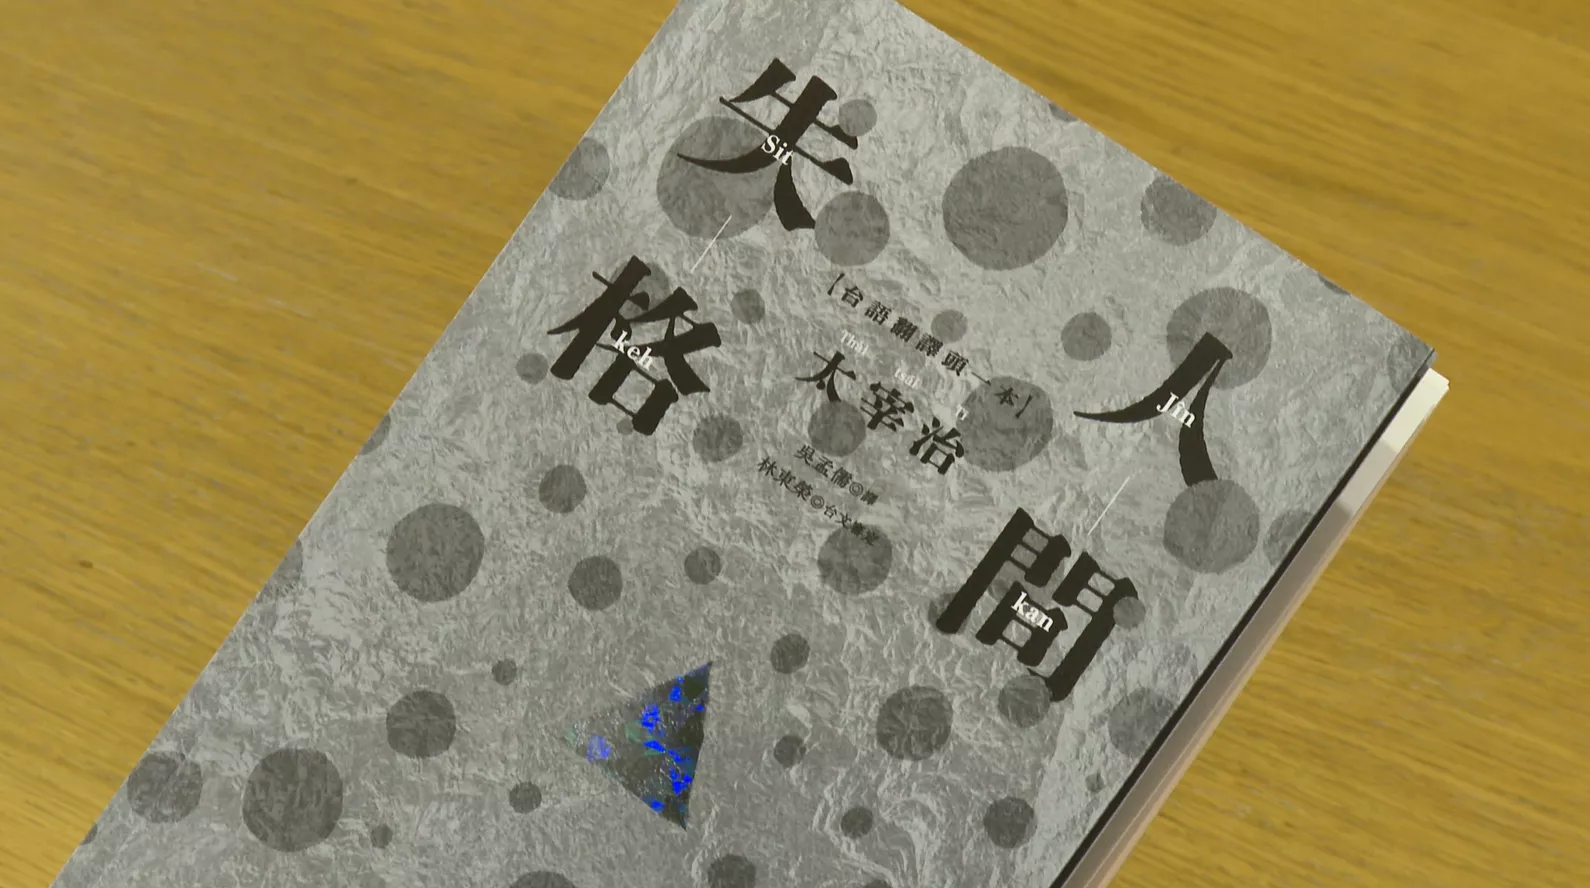 人間
Jîn
kan
失格
Sit
keh
【台語翻譯頭一本】
太宰治
Thài
tsái
吳孟儒◎譯
林東榮◎台文審定